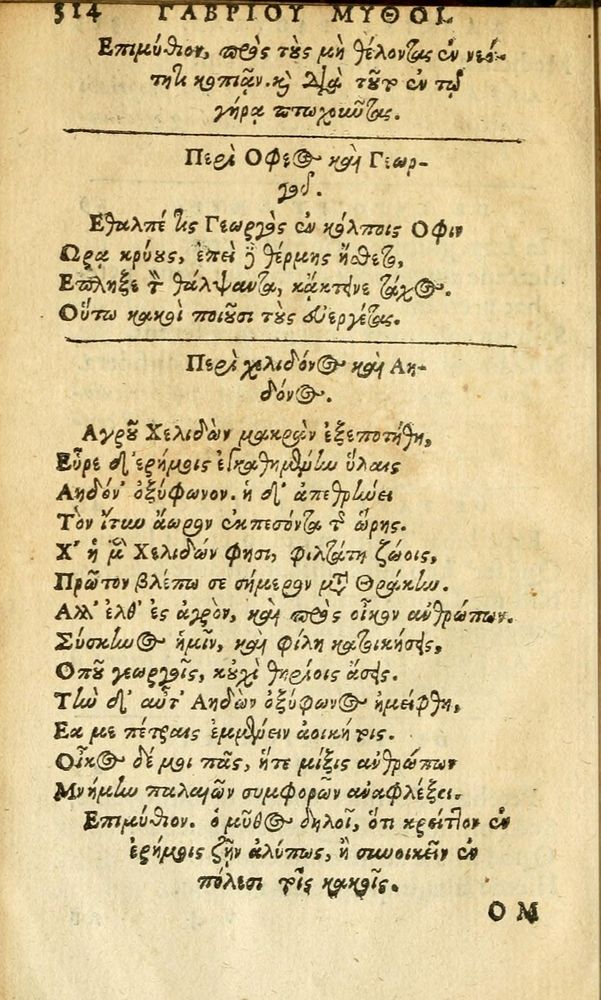 514 ΓΑΒΡΙΟΥ ΜΥΘΟΙ.
Επιμύθιον, πρὸς τοὺς μὴ θέλοντας ἐν νεό-
τητι κοπιᾶν. καὶ διὰ τοῦτο ἐν τῷ
γήρᾳ πτωχοιῶτας.
Περὶ Οφεος καὶ Γεωρ-
γοῦ.
Εθαλπέ τις Γεωργὸς ἐν κόλποις Οφιν
Ωρᾳ κρύους, ἐπεὶ δὲ θέρμης ἤσθετο,
Επληξε τὸν θάλψαντα, κᾄκτεινε τάχος.
Οὕτω κακοὶ ποιοῦσι τοὺς εὐεργέτας.
Περὶ χελιδόνος καὶ Αη-
δόνος.
Αγροῦ Χελιδὼν μακρὰν ἐξεποτήθη,
Εὗρε δ' ἐρήμοις ἐγκαθημένην ὕλαις
Αηδόν' ὀξύφωνον. ἡ δ' ἀπεθρήνει
Τὸν ἴτυν ἄωρον ἐκπεσόντα τῆς ὥρης.
Χ' ἡ μὲν Χελιδών φησι, φιλτάτη ζώοις,
Πρῶτον βλέπω σε σήμερον μετὰ Θρᾴκην.
Αλλ' ἐλθ' ἐς ἀγρὸν, καὶ πρὸς οἶκον ἀνθρώπων.
Σύσκηνος ἡμῖν, καὶ φίλη κατοικήσεις,
Οπου γεωργοῖς, κοὐχὶ θηρίοις ᾄσεις.
Τὴν δ' αὖτ' Αηδὼν ὀξύφωνος ἠμείφθη,
Εα με πέτραις ἐμμένειν ἀοικήτοις.
Οἶκος δέ μοι πᾶς, ἥτε μίξις ἀνθρώπων
Μνήμην παλαιῶν συμφορῶν ἀναφλέξει.
Επιμύθιον. ὁ μῦθος δηλοῖ, ὅτι κρεῖττον ἐν
ἐρήμοις ζῆν ἀλύπως, ἢ συνοικεῖν ἐν
πόλεσι τοῖς κακοῖς.
ΟΜ